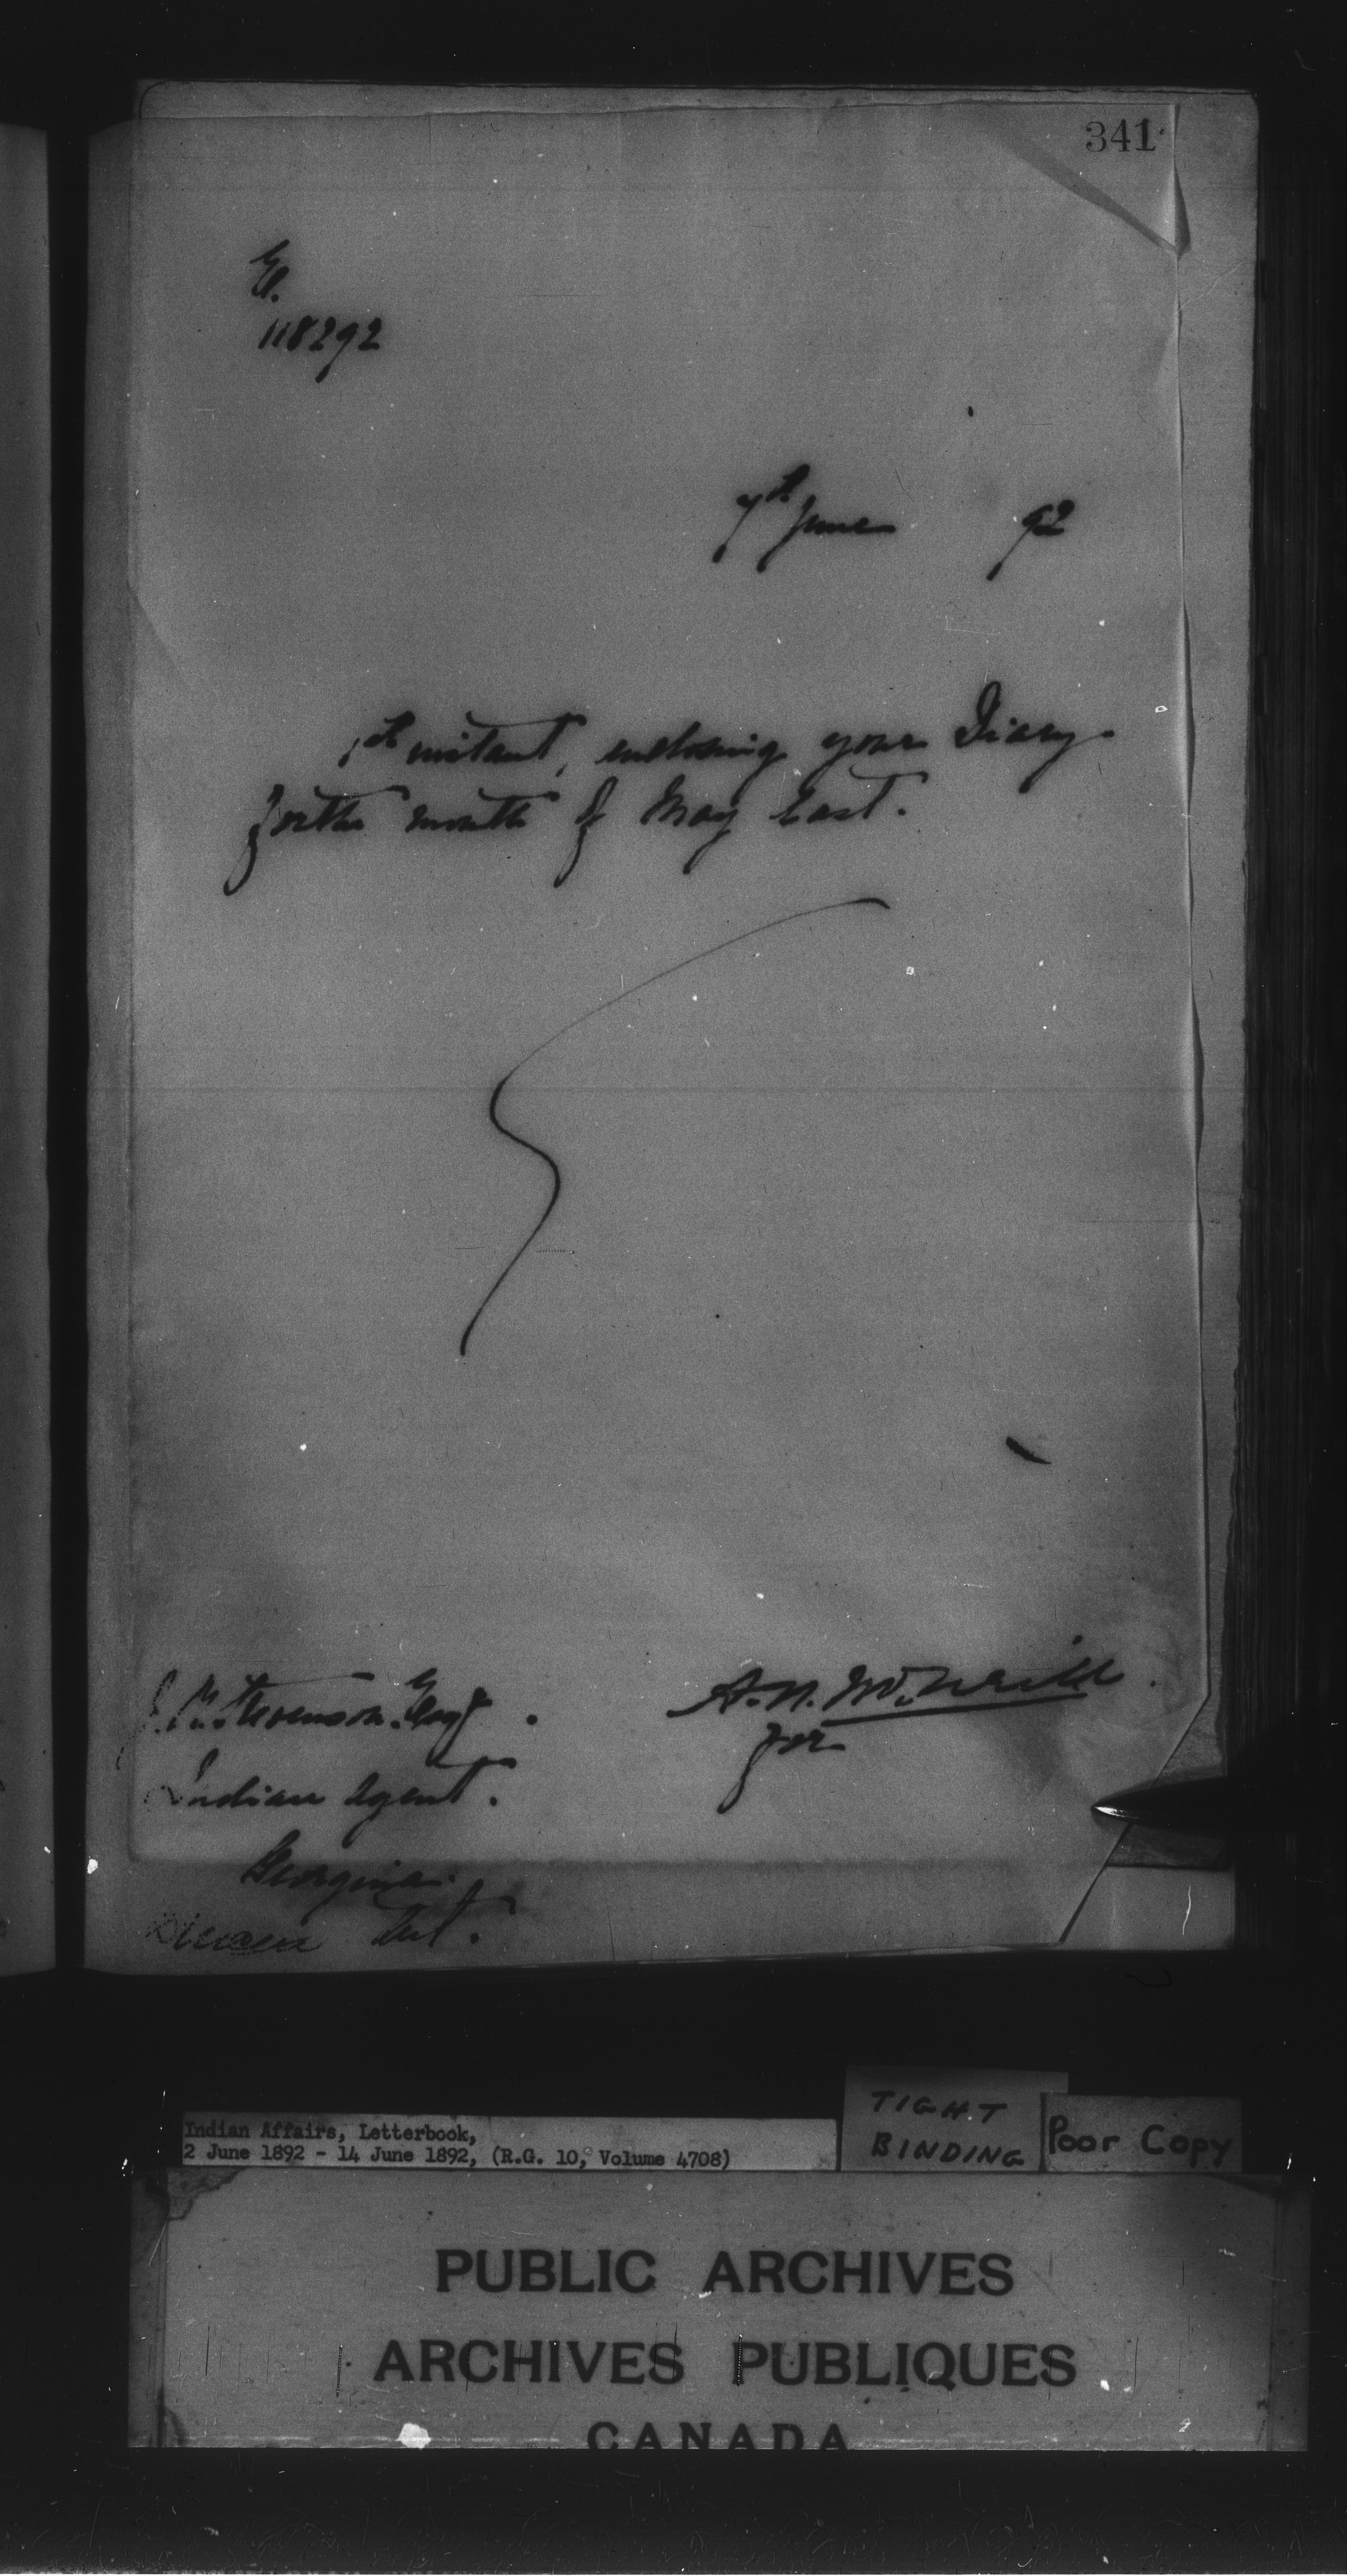 341
118292
7th June 92
1st instant, enclosing your Diary
for the month of May last.
J. R. Stevenson Esq
A. N. McNeill
for
Indian Agent.
Georgina.
Ont.
Indian Affairs, Letterbook,
2 June 1892 - 14 June 1892, (R.G. 10, Volume 4708)
TIGHT
BINDING
Poor Copy
PUBLIC ARCHIVES
ARCHIVES PUBLIQUES
CANADA